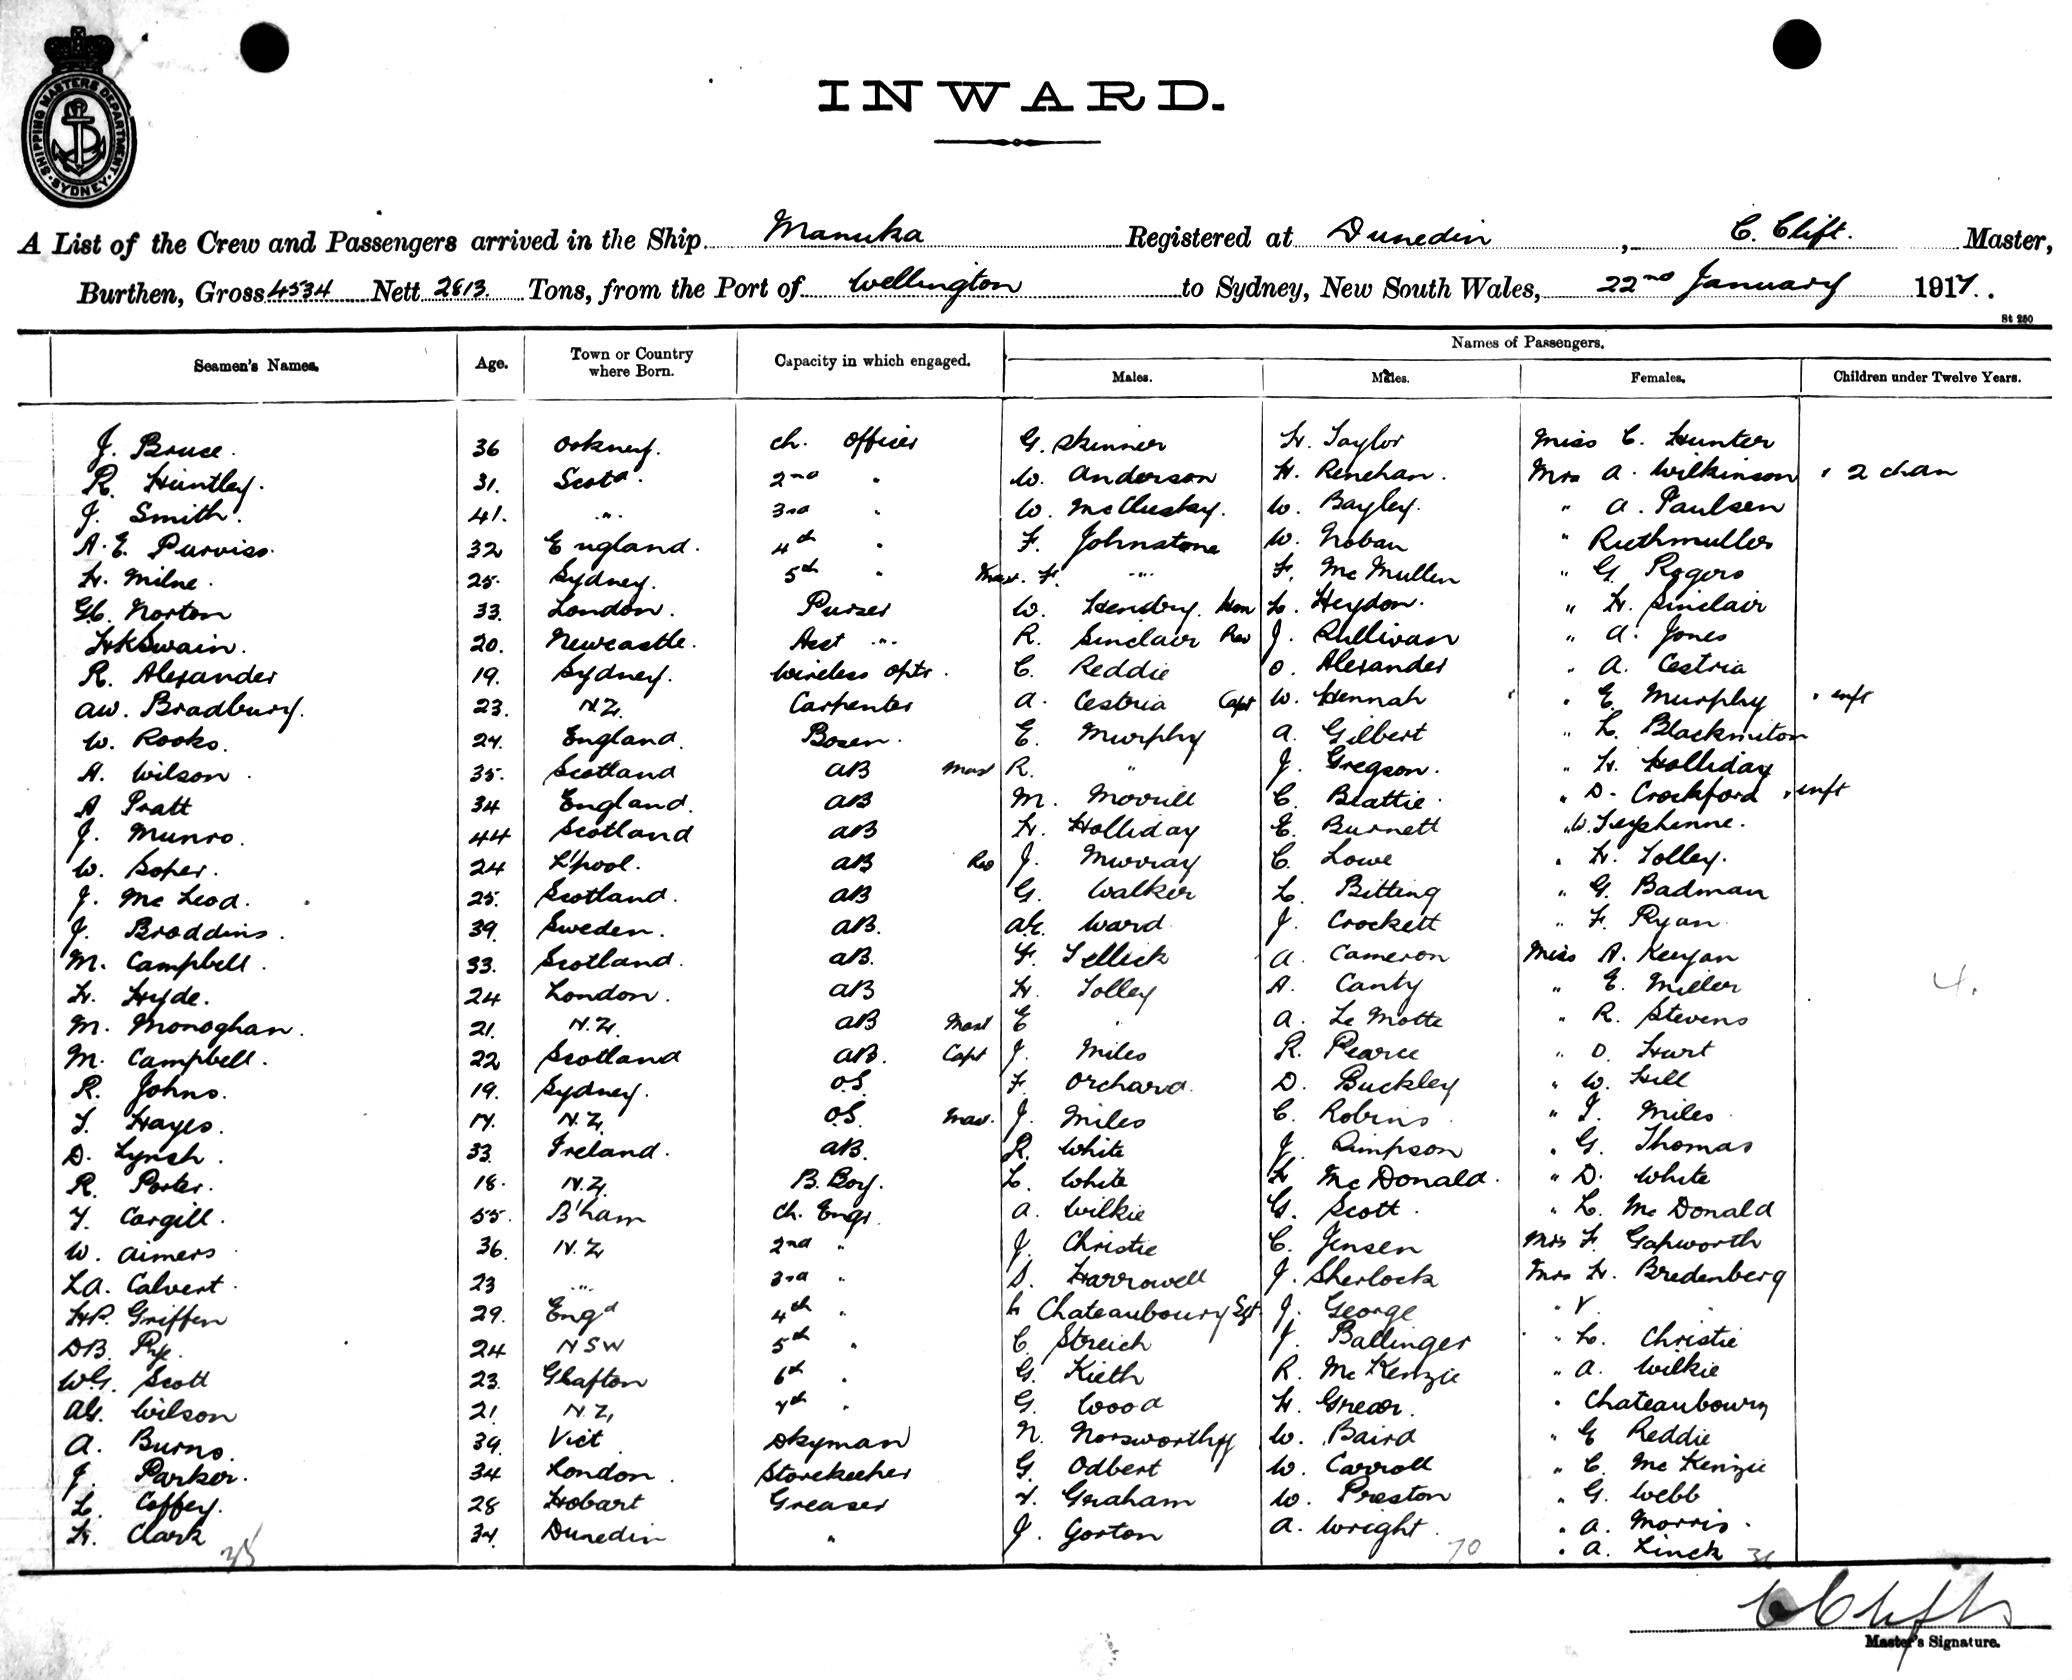 SHIPPING MASTERS DEPARTMENT · SYDNEY ·
INWARD.
A List of the Crew and Passengers arrived in the Ship Manuka Registered at Dunedin, C. Clift. Master,
Burthen, Gross 4534 Nett 2813. Tons, from the Port of Wellington to Sydney, New South Wales, 22nd January 1917.
St 250
Seamen's Names. Age. Town or Country where Born. Capacity in which engaged. Names of Passengers.
Males. Males. Females. Children under Twelve Years.
J. Bruce. 36 Orkney. Ch. Officer G. Skinner H. Taylor Miss C. Hunter
R. Huntley. 31. Scotd. 2nd " W. Anderson H. Renehan. Mrs A. Wilkinson " 2 chdn
J. Smith. 41. " 3rd " W. McClusky. W. Bayley. " A. Paulsen
A. E. Purviss. 32 England. 4th " F. Johnstone W. Noban " Ruthmuller
H. Milne. 25. Sydney. 5th " Mas. F. " F. McMullen " G. Rogers
GC. Norton 33. London. Purser W. Hendry. Hon L. Heydon. " H. Sinclair
HK Swain. 20. Newcastle. Asst " R. Sinclair Rev J. Sullivan " A. Jones
R. Alexander 19. Sydney. Wireless Optr. C. Reddie O. Alexander " A. Cestria
AW. Bradbury. 23. N.Z. Carpenter A. Cestria Capt W. Hennah " E. Murphy " inft
W. Rooks. 24. England. Bosen. E. Murphy A. Gilbert " L. Blackmiton
A. Wilson 35. Scotland AB Mast R. " J. Gregson. " H. Holliday
A Pratt 34 England. AB M. Morrill C. Beattie " D. Crockford " inft
J. Munro. 44 Scotland AB H. Holliday E. Burnett " W. Teyshenne.
W. Soper. 24 L'pool. AB Rev J. Murray C. Lowe " H. Tolley.
J. McLeod. 25. Scotland. AB G. Walker L. Bitting " G. Badman
J. Broddins. 39. Sweden. AB. AE. Ward J. Crockett " F. Ryan
M. Campbell. 33. Scotland. AB. F. Tellick A. Cameron Miss A. Kenyan
H. Hyde. 24 London. AB H. Tolley A. Canty " E. Miller 4.
M. Monoghan. 21. N.Z. AB Mast E " A. Le Motte " R. Stevens
M. Campbell. 22 Scotland AB. Capt J. Miles R. Pearce " O. Hurt
R. Johns. 19. Sydney. O.S. F. Orchard. D. Buckley " W. Hill
T. Hayes. 17. N.Z. O.S. Mas. J. Miles C. Robins " J. Miles
D. Lynch. 33. Ireland. AB. R. White J. Simpson " G. Thomas
R. Porter. 18. N.Z. B. Boy. L. White H McDonald. " D. White
T. Cargill. 55. B'ham Ch. Engr. A. Wilkie G. Scott " L. McDonald
W. Aimers 36. N.Z 2nd " J. Christie C. Jensen Mrs F. Gapworth
LA. Calvert. 23 " 3rd " D. Harrowell J. Sherlock Mrs H. Bredenberg
HP. Griffen 29. Engd 4th " L Chateaubourg Sgt J. George " V. "
DB. Pye. 24 NSW 5th " C. Streich J. Ballinger " L. Christie
WG. Scott 23. Grafton 6th " G. Kieth R. McKenzie " A. Wilkie
AG. Wilson 21. N.Z. 7th " G. Wood H. Grear. " Chateaubourg
A. Burns. 39. Vict Dkyman N. Norsworthy W. Baird " E Reddie
J. Parker. 34 London. Storekeeper G. Odbert W. Carroll " C. McKenzie
L. Coffey. 28 Hobart Greaser T. Graham W. Preston " G. Webb
H. Clark 34. Dunedin " J. Gorton A. Wright. " A. Morris.
35 70 " A. Linck 36
C Clift
Master's Signature.